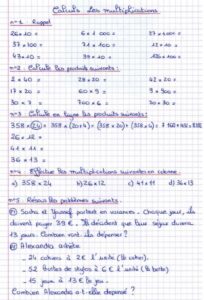 Calculs Les multiplications
n°1 Rappel
26 x 10 = 6 x 1 000 = 37 x 100 =
37 x 100 = 71 x 100 =
43 x 10 =
n°2 Calcule les produits suivants :
2 x 40 = 28 x 20 = 42 x 20 =
17 x 20 = 60 x 9 = 9 x 300 =
30 x 7 = 700 x 6 = 7 x 30 =
n°3 Calcule en ligne les produits suivants :
358 x 24 = 358 x (20+4) = (358 x 20) + (358 x 4) = 7 160 + 1432 =
26 x 12 =
41 x 11 =
36 x 13 =
n°4 Effectue les multiplications suivantes en colonne :
a) 358 x 24 b) 26 x 12 c) 41 x 11 d) 36 x 13
n°5 Résous les problèmes suivants :
Sacha et Youssef partent en vacances. Chaque jour, ils
doivent payer 39 €. Ils décident que leur séjour durera
13 jours. Combien vont-ils dépenser ?
Alexandra achète
- 24 cahiers à 2 € l'unité (le cahier).
- 52 boîtes de stylos à 6 € l'unité (la boîte)
- 15 jeux à 13 € le jeu.
Combien Alexandra a-t-elle dépensé ?